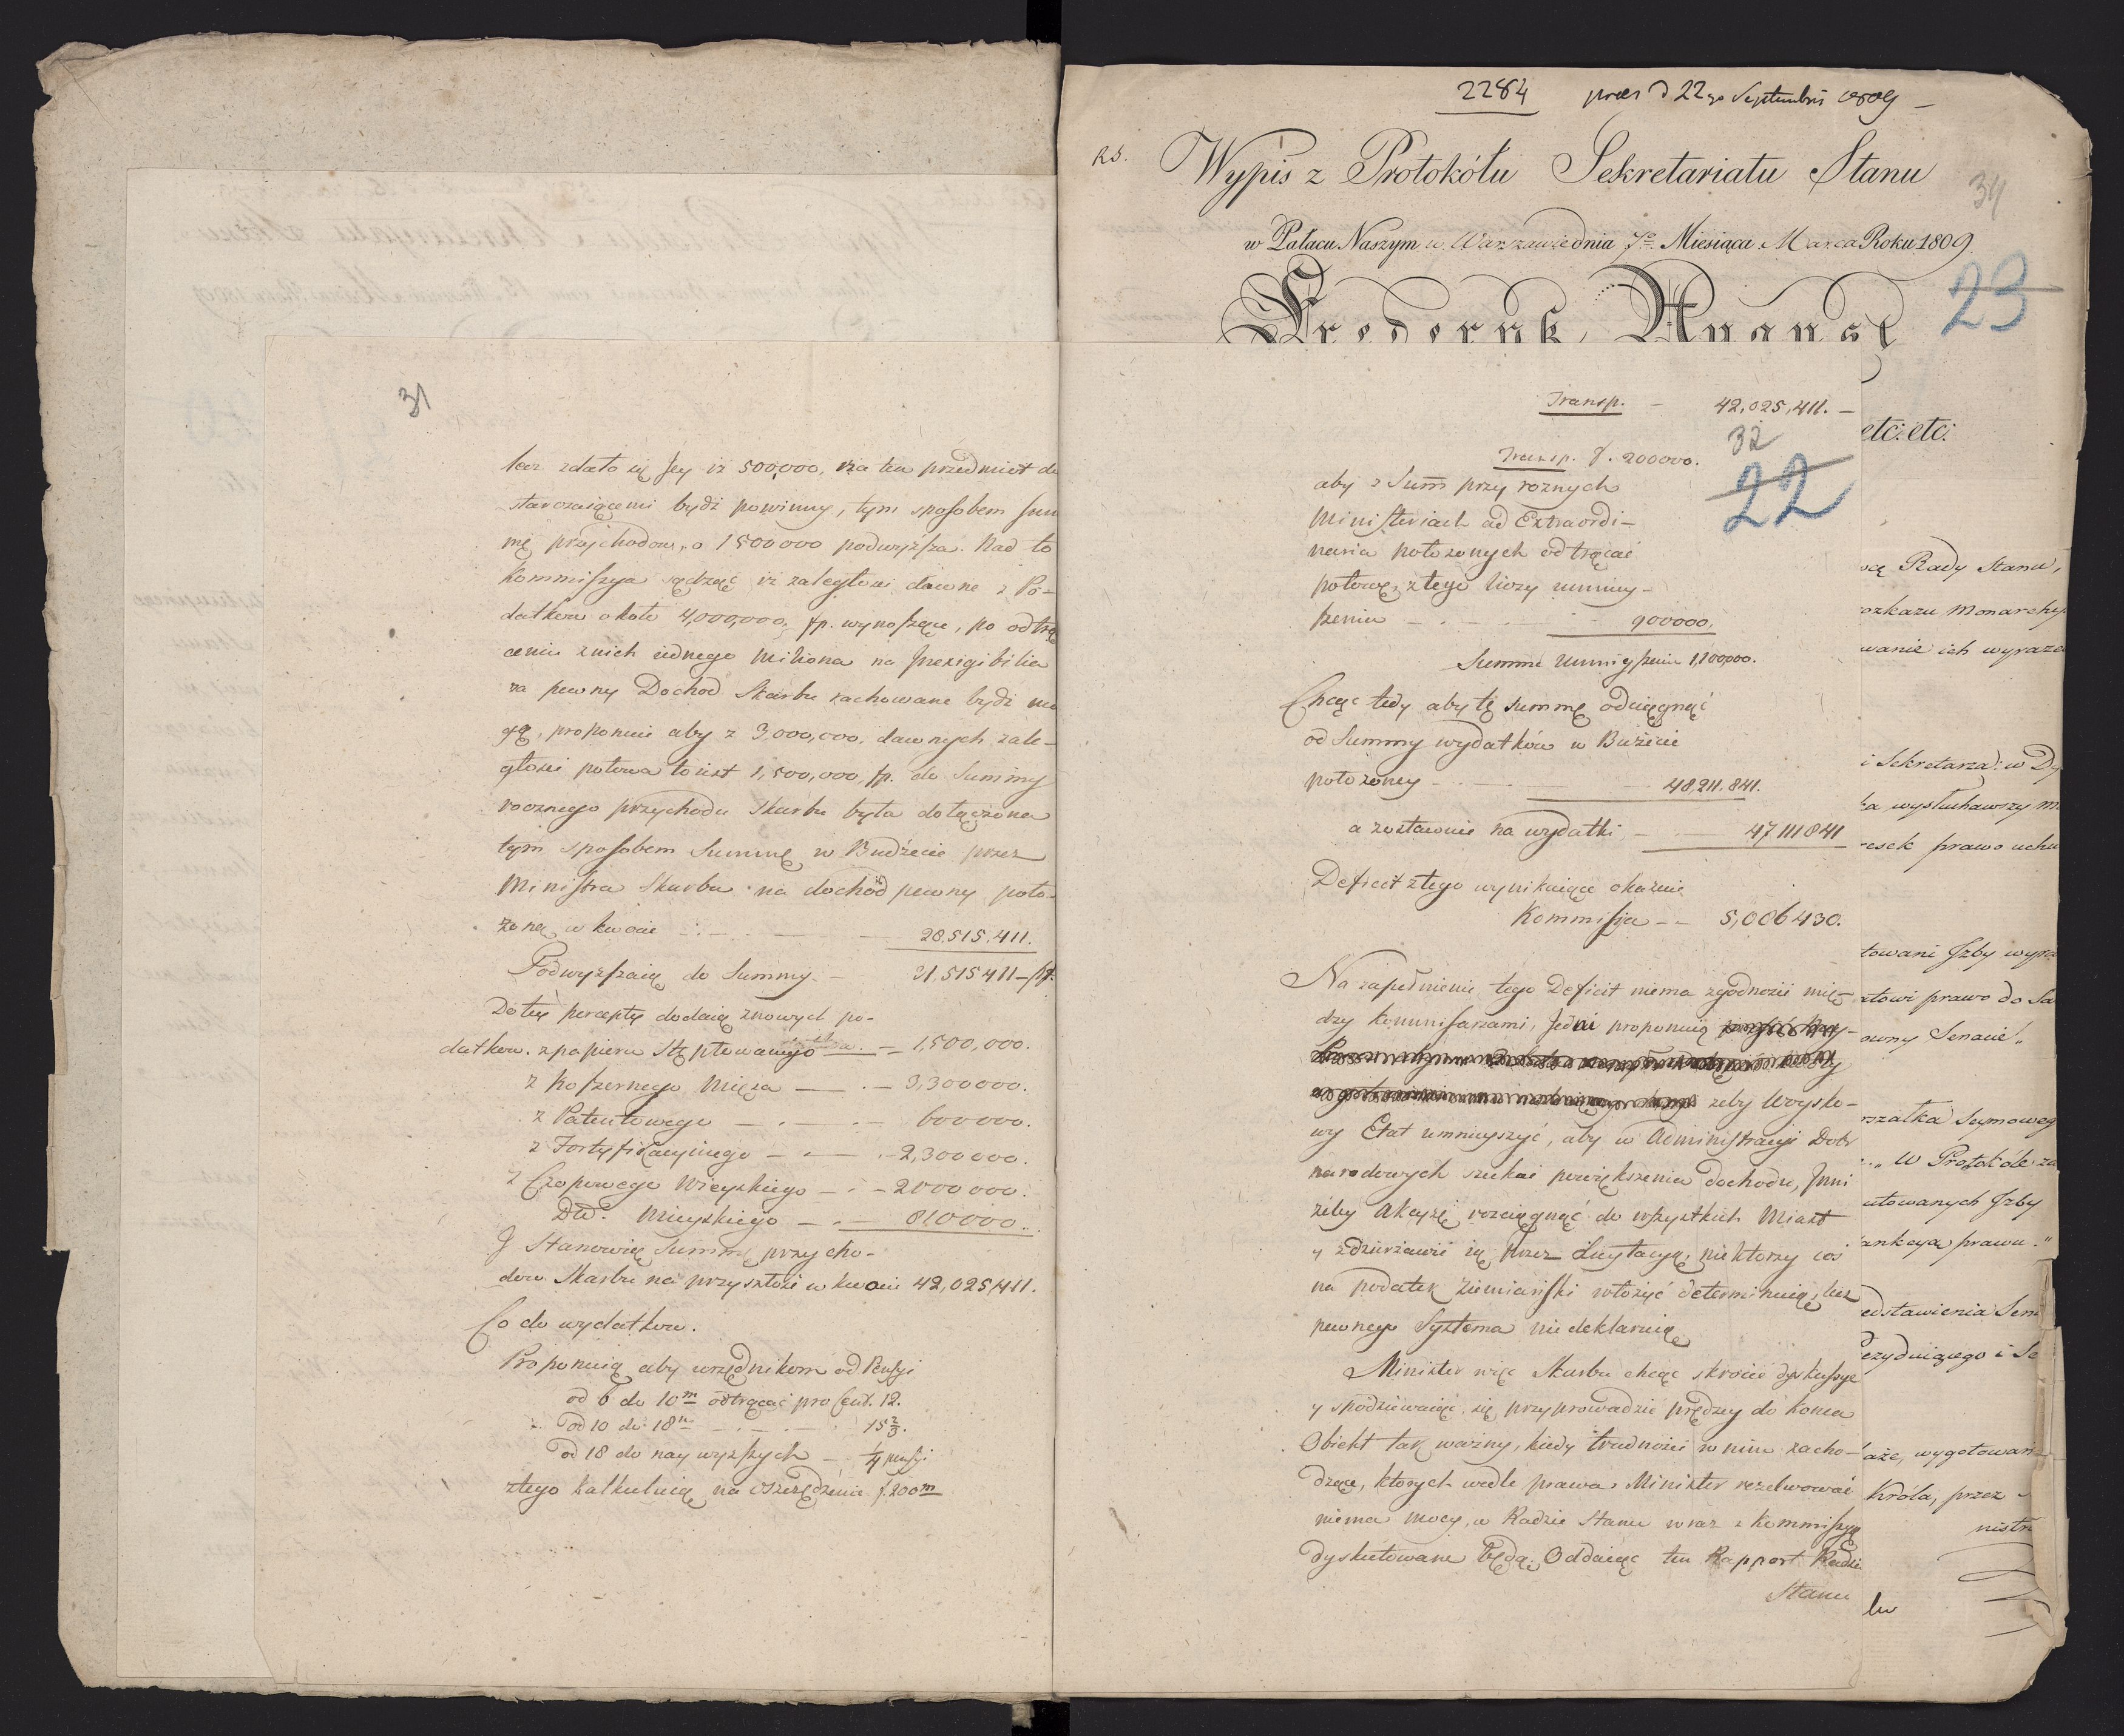 31
lecz zdało się Jey iż 500,000, na ten przedmiot do
starczaiącemi bydź powinny, tym sposobem sum
mę przychodow, o 1500000 podwyższa. Nad to
Kommissya sądząc iż zaległości dawne z Po-
datkow około 4,000,000. fp. wynoszące, po odtrą
ceniu z nich iednego Miliona na Inexigibilia
za pewny Dochod Skarbu rachowane bydź mo
gą, proponuie aby z 3,000,000. dawnych zale-
głości połowa to iest 1,500,000 fp. do Summy
rocznego przychodu Skarbu była dołączona
tym sposobem Summę w Budżecie przez
Ministra Skarbu na dochód pewny poło-
żoną w kwocie — 28.515.411.
Podwyższaią do Summy — 31.515411 —
Do tey percepty dodaią z nowych po-
datkow. z papieru Stęplowanego — 1,500,000.
z Koszernego Mięsa — 3,300000.
z Patentowego — 600000.
z Fortyfikacyinego — 2,300000.
z Czopowego Wieyskiego — 2000000.
Dto. Mieyskiego — 810000.
J Stanowią Summę przycho-
dow Skarbu na przyszłość w kwocie 42,025,411.
Co do wydatkow.
Proponuią aby urzędnikom od Pensyi
od 6 do 10m odtrącać pro Cent. 12.
od 10 do 18m — 15 2/3.
od 18 do naywyższych — 1/4 pensyi
z tego kalkuluią na oszczędzenie f. 200m
2284 praes d 22go Septembris 1809 —
RS.
Wypis z Protokółu Sekretariatu Stanu
34
w Pałacu Naszym w Warszawie dnia 7o Miesiąca Marca Roku 1809.
Fryderyk August
23
etc: etc:
Transp. — 42,025,411. —
32
Transp. f. 200000.
22
aby z Summ przy roznych
Ministeriach ad Extraordi-
naria położonych odtrącać
połowę, z tego liczy umniey-
szenia — 900000.
Summa Umnieyszenia 1,100000.
Chcąc tedy aby tę summę odciągnąć
od Summy wydatków w Budżecie
położoney — 48.211.841.
a zostawuie na wydatki — 47111841
Deficit z tego wynikaiące okazuie
Kommissya — 5,086430.
Na zapełnienie tego Deficit niema zgodności mię-
dzy Kommissarzami, Jedni proponuią
żeby Woysko-
wy Etat umnieyszyć, aby w Administracyi Dobr
narodowych szukać powiększenia dochodu, Jnni
żeby Akcyzę rozciągnąć do wszystkich Miast
y zdzierżawić ią przez Licytacyą, niektorzy coś
na podatek Ziemiański włożyć determinuią, lecz
pewnego Systema nie deklaruią
Minister więc Skarbu chcąc skrócić dyskussye
y spodziewaiąc się przyprowadzić prędzey do końca
Obiekt tak ważny, kiedy trudności w nim zacho-
dzące, ktorych wedle prawa Minister rezolwować
niema mocy, w Radzie Stanu wraz z Kommissyą
dyskutowane będą. Oddaiąc ten Rapport Radzie
Stanu
Rady Stanu,
ozkazu Monarchy
wanie ich wyraze
i Sekretarza: w Dy
ka wysłuchawszy
prawo uchw
towani Jzby wyra
ktowi prawo do Sa
owny Senacie„
rszałka Seymoweg
„ W Protokóle za
utowanych Jzby
ankcya prawu."
edstawienia Sena
ezyduiącego i Se
aże, wygotowan
Króla, przez
nistr